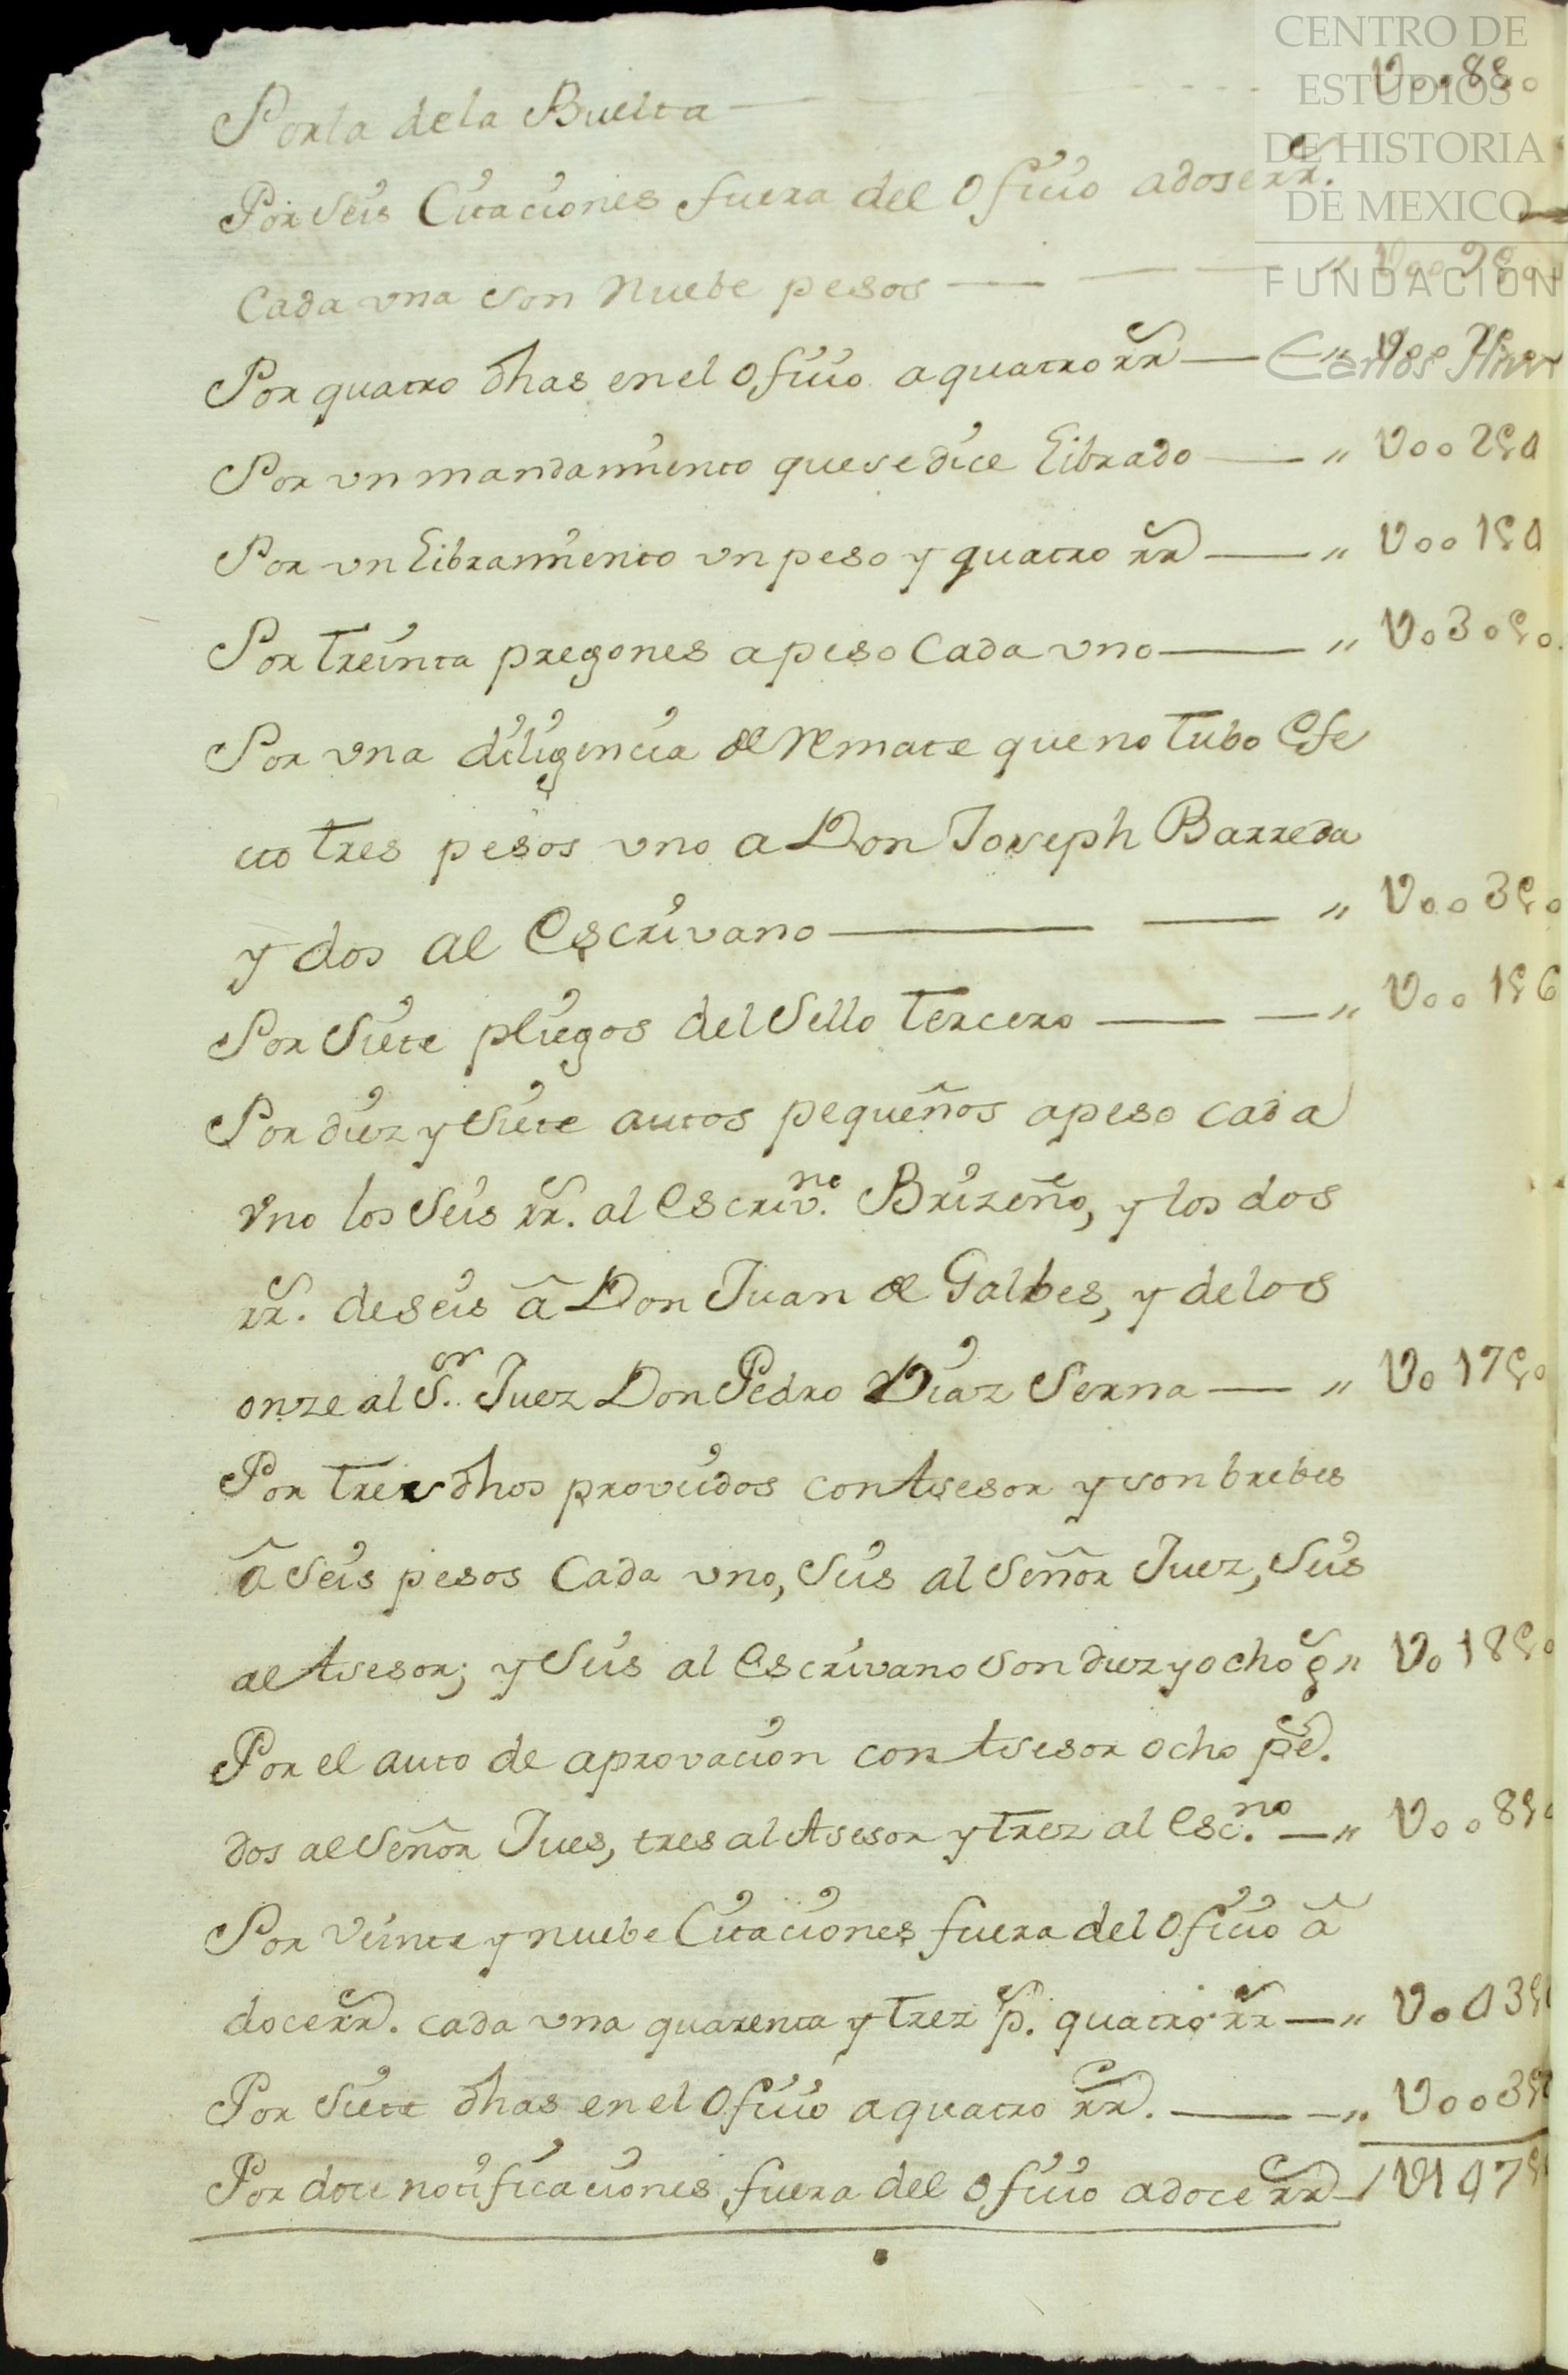 CENTRO DE
ESTUDIOS
DE HISTORIA
DE MEXICO
FUNDACION
Carlos Slim
Porla dela Buelta — U0088
Por Seis Citaciones fuera del Oficio adose rr.
Cada vna son Nuebe pesos — " U009
Por quatro dhas en el Oficio a quatro rr — " U002
Por vn mandamiento que se dice Librado — " U002ps4
Por vn Libramiento vn peso y quatro rr — " U001ps4
Por Treinta pregones a peso Cada vno — " U030ps0.
Por vna diligencia de remate que no Tubo Efe
cto Tres pesos vno a Don Joseph Barreda
y dos al Escrivano — " U003ps0
Por Siete pliegos del Sello Tercero — " U001ps6
Por diez y Siete autos pequeños a peso cada
vno los Seis rr. al Escriv.no Brizeño, y los dos
rr. de seis â Don Juan de Galbes, y de los
onze al S.or Juez Don Pedro Diaz Serna — " U017ps0
Por Tres dhos proveidos con Asesor y son brebes
â Seis pesos Cada vno, Seis al Señor Juez, Seis
al Asesor; y Seis al Escrivano son diez y ocho ps " U018ps0
Por el auto de aprovacion con Asesor ocho ps.
dos al Señor Jues, tres al Asesor y Trez al Esc.no — " U008ps
Por Veinte y nuebe Citaciones fuera del Oficio â
doce rr. cada vna quarenta y Trez p.s quatro rr — " U043ps
Por Siete dhas en el Oficio a quatro rr. — " U003ps
Por doce notificaciones fuera del Oficio a doce rr — / U147ps